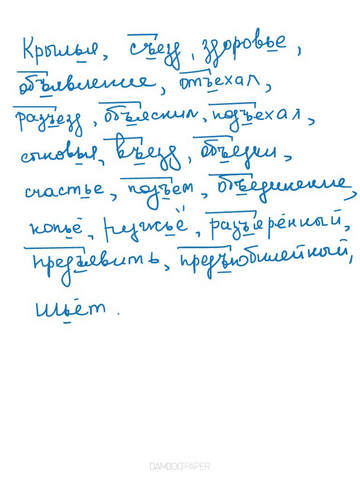 Крылья, съезд, здоровье,
объявление, отъехал,
разъезд, объяснил, подъехал,
сыновья, въезд, объедки,
счастье, подъем, объединение,
копьё, ружьё, разъярённый,
предъявить, предъюбилейный,
шьёт.
BAMBOO PAPER